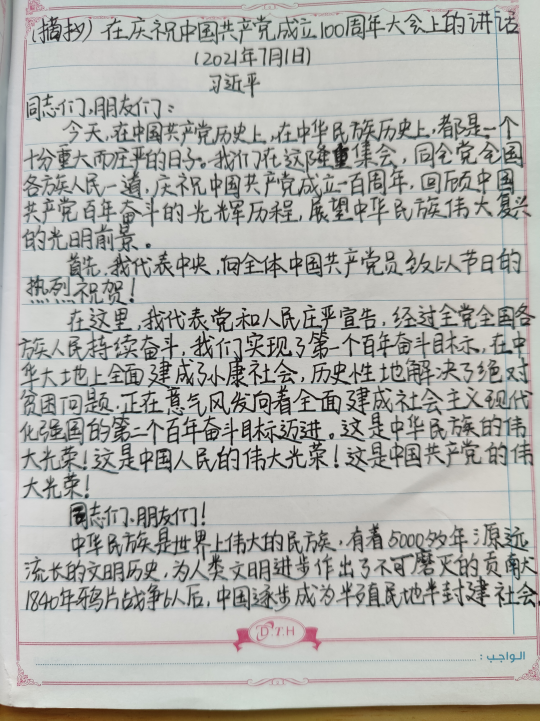 (摘抄) 在庆祝中国共产党成立100周年大会上的讲话
(2021年7月1日)
习近平
同志们、朋友们：
今天，在中国共产党历史上，在中华民族历史上，都是一个
十分重大而庄严的日子。我们在这隆重集会，同全党全国
各族人民一道，庆祝中国共产党成立一百周年，回顾中国
共产党百年奋斗的光辉历程，展望中华民族伟大复兴
的光明前景。
首先，我代表中央，向全体中国共产党员致以节日的
热烈祝贺！
在这里，我代表党和人民庄严宣告，经过全党全国各
族人民持续奋斗，我们实现了第一个百年奋斗目标，在中
华大地上全面建成了小康社会，历史性地解决了绝对
贫困问题，正在意气风发向着全面建成社会主义现代
化强国的第二个百年奋斗目标迈进。这是中华民族的伟
大光荣！这是中国人民的伟大光荣！这是中国共产党的伟
大光荣！
同志们、朋友们！
中华民族是世界上伟大的民族，有着5000多年源远
流长的文明历史，为人类文明进步作出了不可磨灭的贡献。
1840年鸦片战争以后，中国逐步成为半殖民地半封建社会，
D.T.H
الواجب: